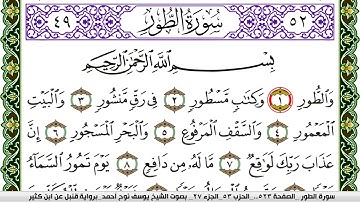 ٤٩ سُورَةُ الطُّورِ ٥٢
بِسْمِ اللَّهِ الرَّحْمَٰنِ الرَّحِيمِ
وَالطُّورِ ١ وَكِتَابٍ مَسْطُورٍ ٢ فِي رَقٍّ مَنْشُورٍ ٣ وَالْبَيْتِ
الْمَعْمُورِ ٤ وَالسَّقْفِ الْمَرْفُوعِ ٥ وَالْبَحْرِ الْمَسْجُورِ ٦ إِنَّ
عَذَابَ رَبِّكَ لَوَاقِعٌ ٧ مَا لَهُ مِنْ دَافِعٍ ٨ يَوْمَ تَمُورُ السَّمَاءُ
سورة الطور_ الصفحة ٥٢٣_ الحزب ٥٣_ الجزء ٢٧_ بصوت الشيخ يوسف نوح أحمد_ برواية قنبل عن ابن كثير